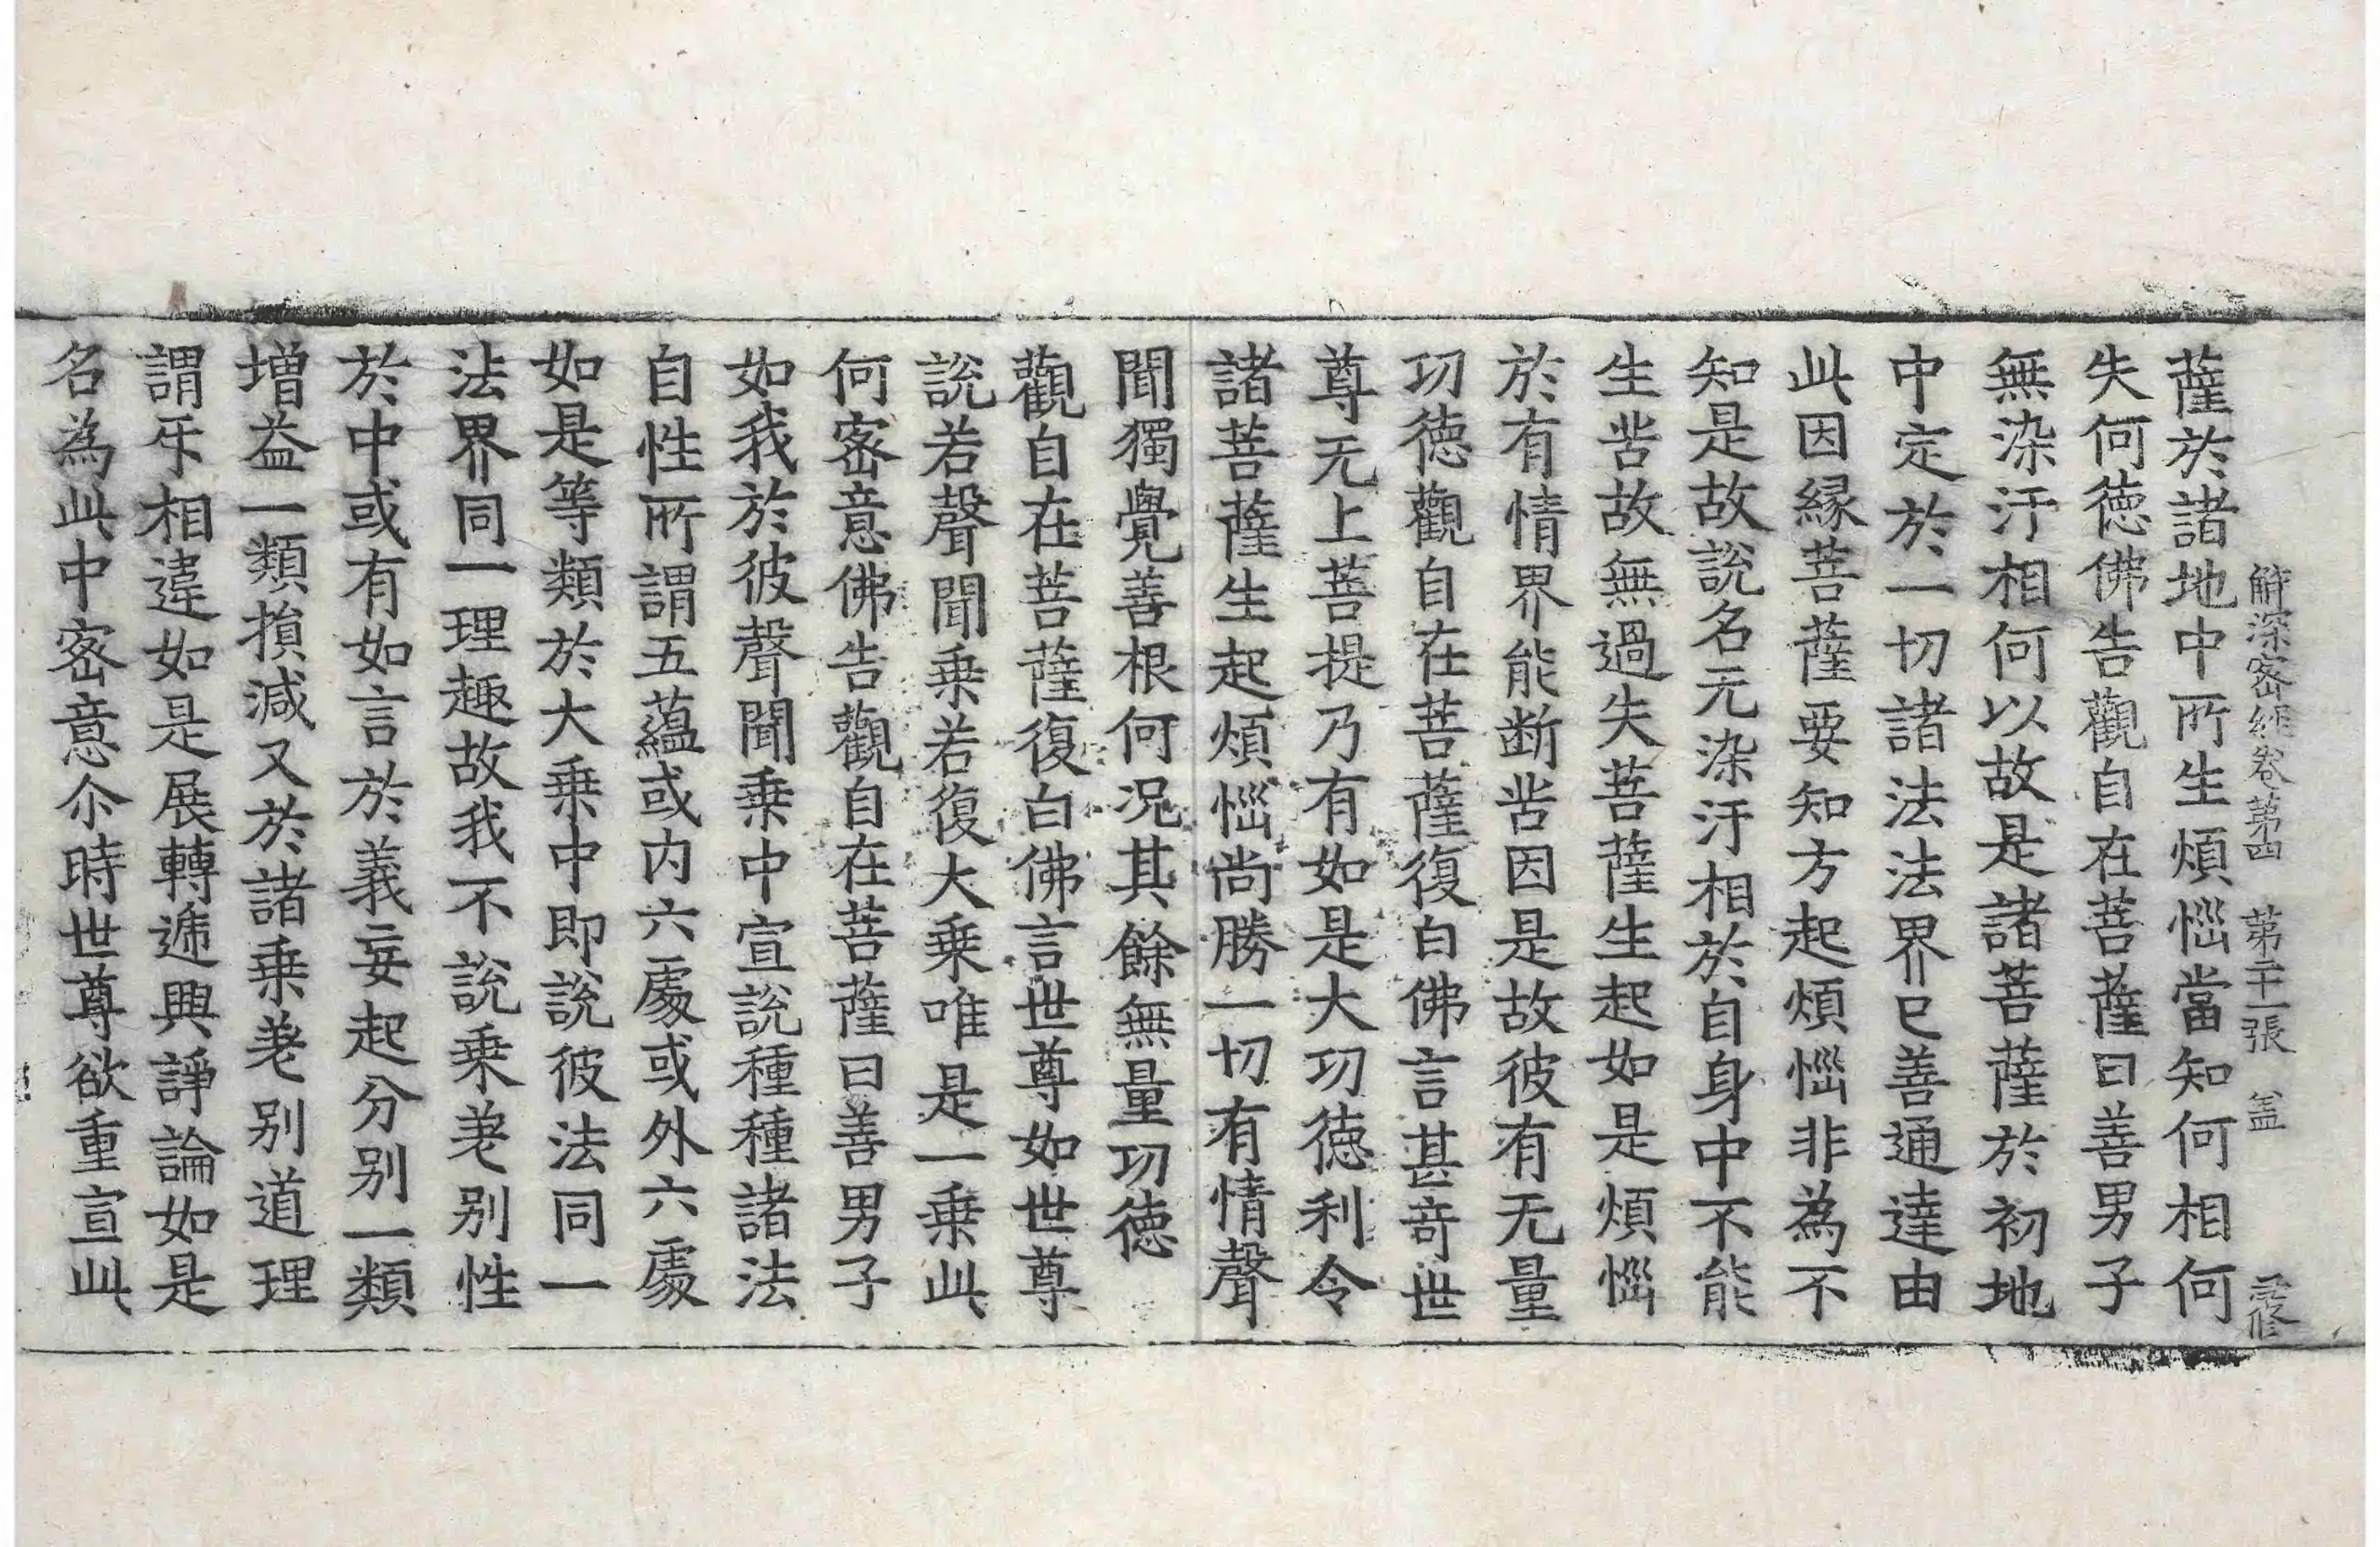 解深密經卷第四　第二十一張　蓋
薩於諸地中所生煩惱當知何相何
失何德佛告觀自在菩薩曰善男子
無染汙相何以故是諸菩薩於初地
中定於一切諸法法界已善通達由
此因緣菩薩要知方起煩惱非為不
知是故說名无染汙相於自身中不能
生苦故無過失菩薩生起如是煩惱
於有情界能断苦因是故彼有无量
功德觀自在菩薩復白佛言甚奇世
尊无上菩提乃有如是大功德利令
諸菩薩生起煩惱尚勝一切有情聲
聞獨覺善根何況其餘無量功德
觀自在菩薩復白佛言世尊如世尊
說若聲聞乗若復大乗唯是一乗此
何密意佛告觀自在菩薩曰善男子
如我於彼聲聞乗中宣說種種諸法
自性所謂五蘊或內六處或外六處
如是等類於大乗中即說彼法同一
法界同一理趣故我不說乗差别性
於中或有如言於義妄起分别一類
增益一類損減又於諸乗差别道理
謂互相違如是展轉遞興諍論如是
名為此中密意尒時世尊欲重宣此